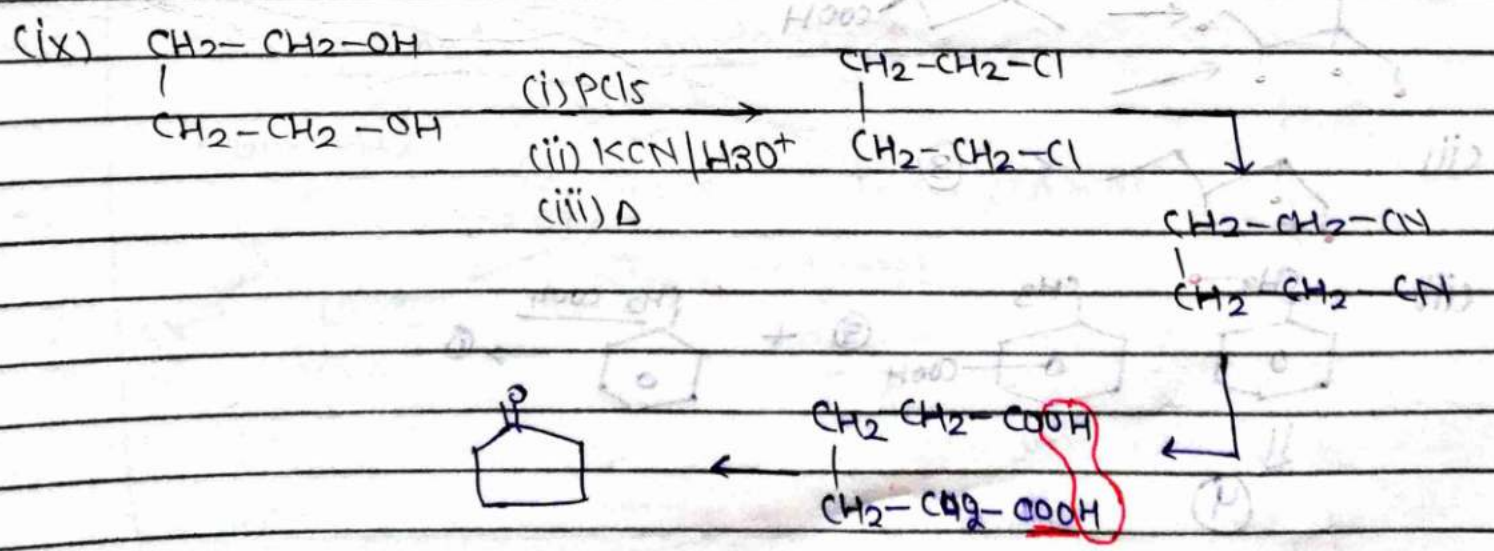 (ix) CH2- CH2-OH
|
CH2-CH2-OH
(i) PCl5
(ii) KCN/H3O+
(iii) Δ
CH2-CH2-Cl
|
CH2-CH2-Cl
CH2-CH2-CN
|
CH2 CH2 - CN
CH2 CH2- COOH
|
CH2- CH2- COOH
O